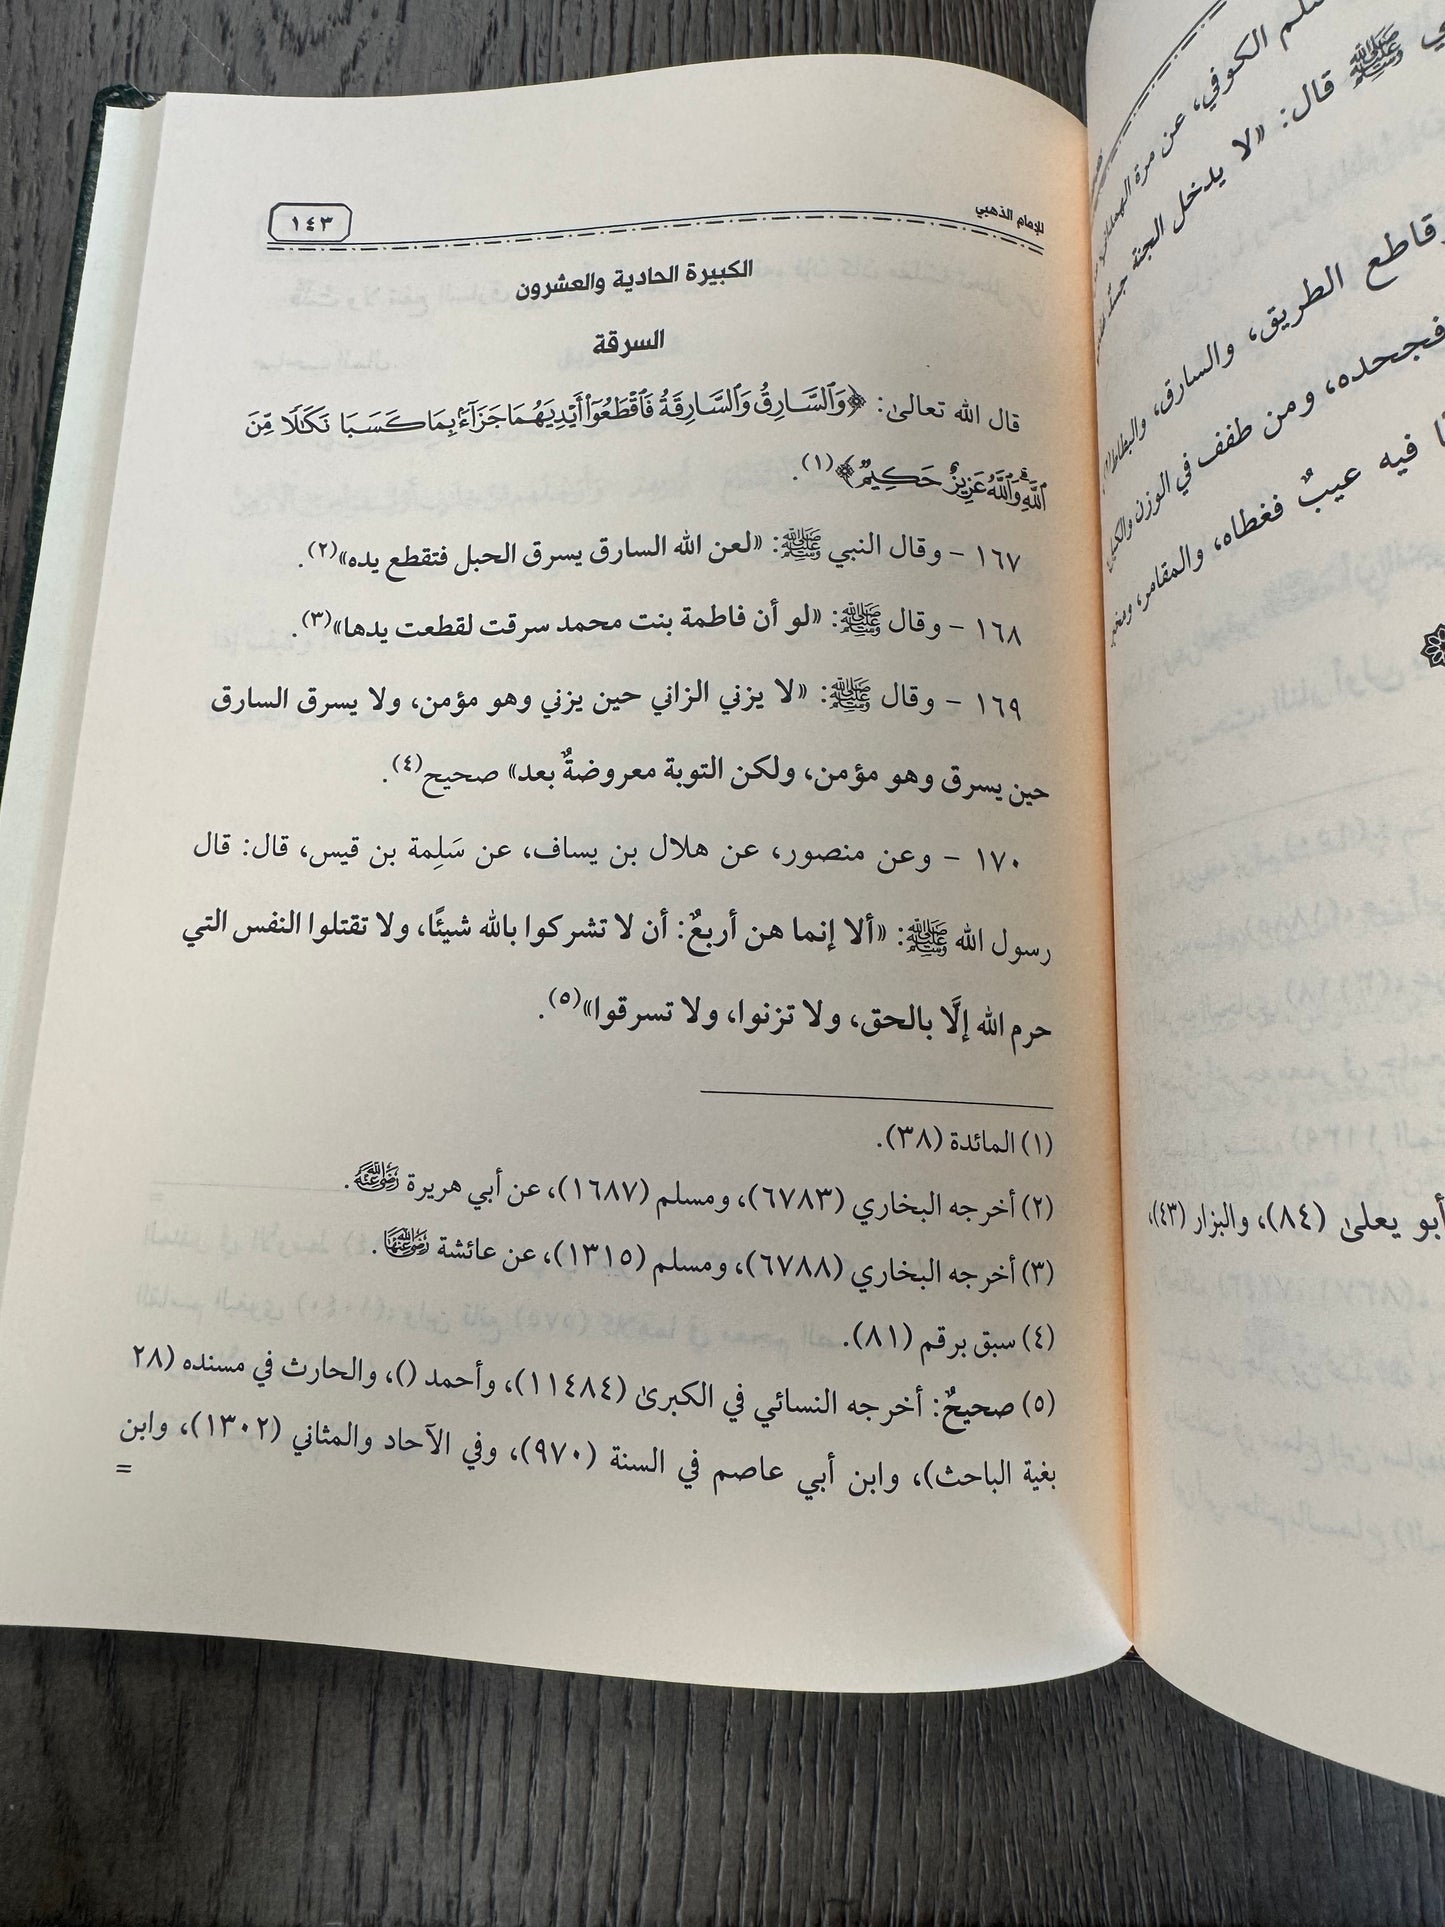 سلم الكوفي، عن مرة
ﷺ قال: «لا يدخل الجنة
قاطع الطريق، والسارق، والبطاط(٢)
فجحده، ومن طفف في الوزن والكيل
فيه عيبٌ فغطاه، والمقامر،
أبو يعلىٰ (٨٤)، والبزار (٤٣)،
للإمام الذهبي
١٤٣
الكبيرة الحادية والعشرون
السرقة
قال الله تعالىٰ: ﴿وَٱلسَّارِقُ وَٱلسَّارِقَةُ فَٱقْطَعُوٓا۟ أَيْدِيَهُمَا جَزَآءًۢ بِمَا كَسَبَا نَكَٰلًا مِّنَ
ٱللَّهِۗ وَٱللَّهُ عَزِيزٌ حَكِيمٌ﴾(١).
١٦٧ - وقال النبي ﷺ: «لعن الله السارق يسرق الحبل فتقطع يده»(٢).
١٦٨ - وقال ﷺ: «لو أن فاطمة بنت محمد سرقت لقطعت يدها»(٣).
١٦٩ - وقال ﷺ: «لا يزني الزاني حين يزني وهو مؤمن، ولا يسرق السارق
حين يسرق وهو مؤمن، ولكن التوبة معروضةٌ بعد» صحيح(٤).
١٧٠ - وعن منصور، عن هلال بن يساف، عن سَلِمة بن قيس، قال: قال
رسول الله ﷺ: «ألا إنما هن أربعٌ: أن لا تشركوا بالله شيئًا، ولا تقتلوا النفس التي
حرم الله إلَّا بالحق، ولا تزنوا، ولا تسرقوا»(٥).
(١) المائدة (٣٨).
(٢) أخرجه البخاري (٦٧٨٣)، ومسلم (١٦٨٧)، عن أبي هريرة رضي الله عنه.
(٣) أخرجه البخاري (٦٧٨٨)، ومسلم (١٣١٥)، عن عائشة رضي الله عنها.
(٤) سبق برقم (٨١).
(٥) صحيحٌ: أخرجه النسائي في الكبرىٰ (١١٤٨٤)، وأحمد ()، والحارث في مسنده (٢٨
بغية الباحث)، وابن أبي عاصم في السنة (٩٧٠)، وفي الآحاد والمثاني (١٣٠٢)، وابن
=